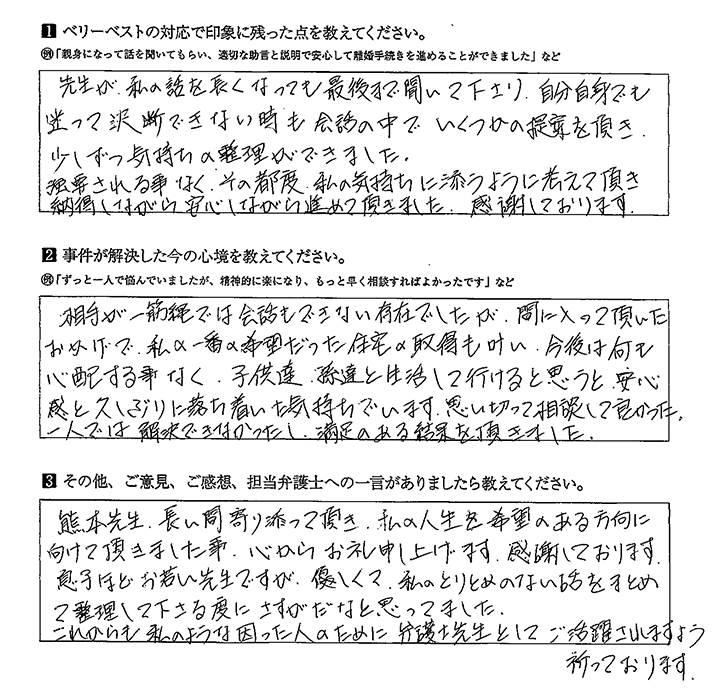 1 ベリーベストの対応で印象に残った点を教えてください。
例「親身になって話を聞いてもらい、適切な助言と説明で安心して離婚手続きを進めることができました」など
先生が、私の話を長くなっても最後まで聞いて下さり、自分自身でも
迷って決断できない時も会話の中でいくつかの提案を頂き、
少しずつ気持ちの整理ができました。
強要される事なく、その都度、私の気持ちに添うように考えて頂き
納得しながら安心しながら進めて頂きました。感謝しております。
2 事件が解決した今の心境を教えてください。
例「ずっと一人で悩んでいましたが、精神的に楽になり、もっと早く相談すればよかったです」など
相手が一筋縄では会話もできない存在でしたが、間に入って頂いた
おかげで、私の一番の希望だった住宅の取得も叶い、今後は何も
心配する事なく、子供達、孫達と生活して行けると思うと、安心
感と久しぶりに落ち着いた気持ちでいます。思い切って相談して良かった。
一人では解決できなかったし、満足のある結果を頂きました。
3 その他、ご意見、ご感想、担当弁護士への一言がありましたら教えてください。
熊本先生、長い間寄り添って頂き、私の人生を希望のある方向に
向けて頂きました事、心からお礼申し上げます。感謝しております。
息子ほどお若い先生ですが、優しくて、私のとりとめのない話をまとめ
て整理して下さる度に さすがだなと思ってました。
これからも私のような困った人のために弁護士先生としてご活躍されますよう
祈っております。